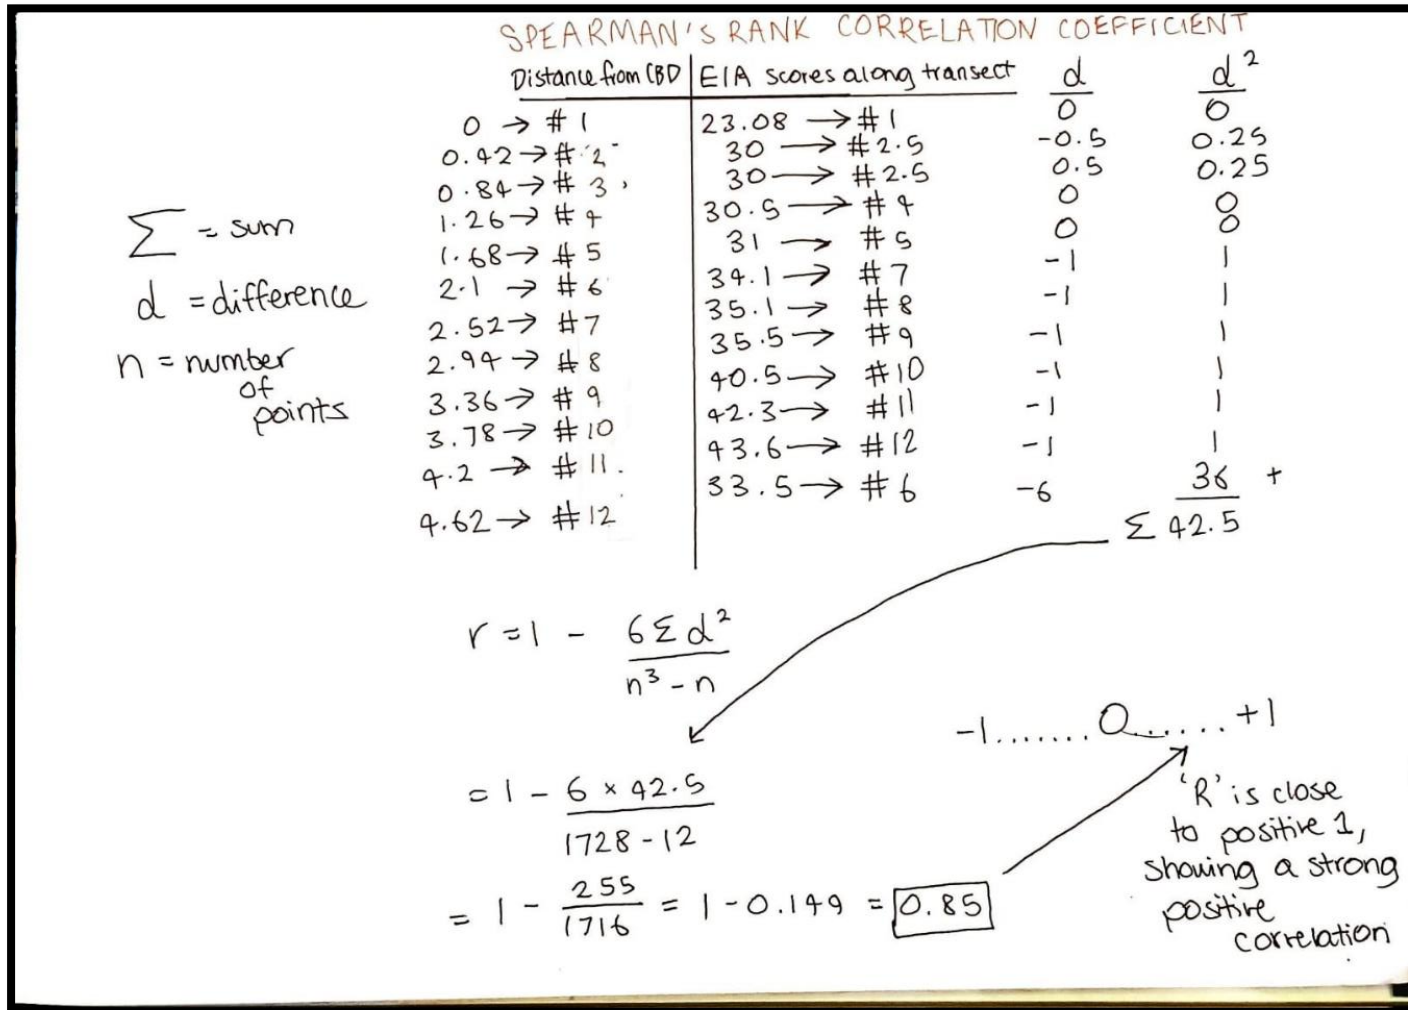 SPEARMAN'S RANK CORRELATION COEFFICIENT
Distance from CBD EIA scores along transect d d²
0 → #1 23.08 → #1 0 0
0.42 → #2 30 → #2.5 -0.5 0.25
0.84 → #3 30 → #2.5 0.5 0.25
1.26 → #4 30.5 → #4 0 0
1.68 → #5 31 → #5 0 0
2.1 → #6 34.1 → #7 -1 1
2.52 → #7 35.1 → #8 -1 1
2.94 → #8 35.5 → #9 -1 1
3.36 → #9 40.5 → #10 -1 1
3.78 → #10 42.3 → #11 -1 1
4.2 → #11. 43.6 → #12 -1 1
4.62 → #12 33.5 → #6 -6 36 +
Σ 42.5
Σ = sum
d = difference
n = number
of
points
r = 1 - 6Σd² / n³ - n
= 1 - 6 × 42.5 / 1728 - 12
= 1 - 255 / 1716 = 1 - 0.149 = 0.85
-1.......0......+1
'R' is close
to positive 1,
showing a strong
positive
correlation